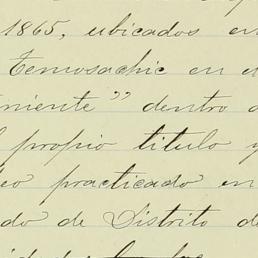 1865, ubicados en
Temosachic en el
niente" dentro d
propio titulo y
eo practicado en
do de Distrito de